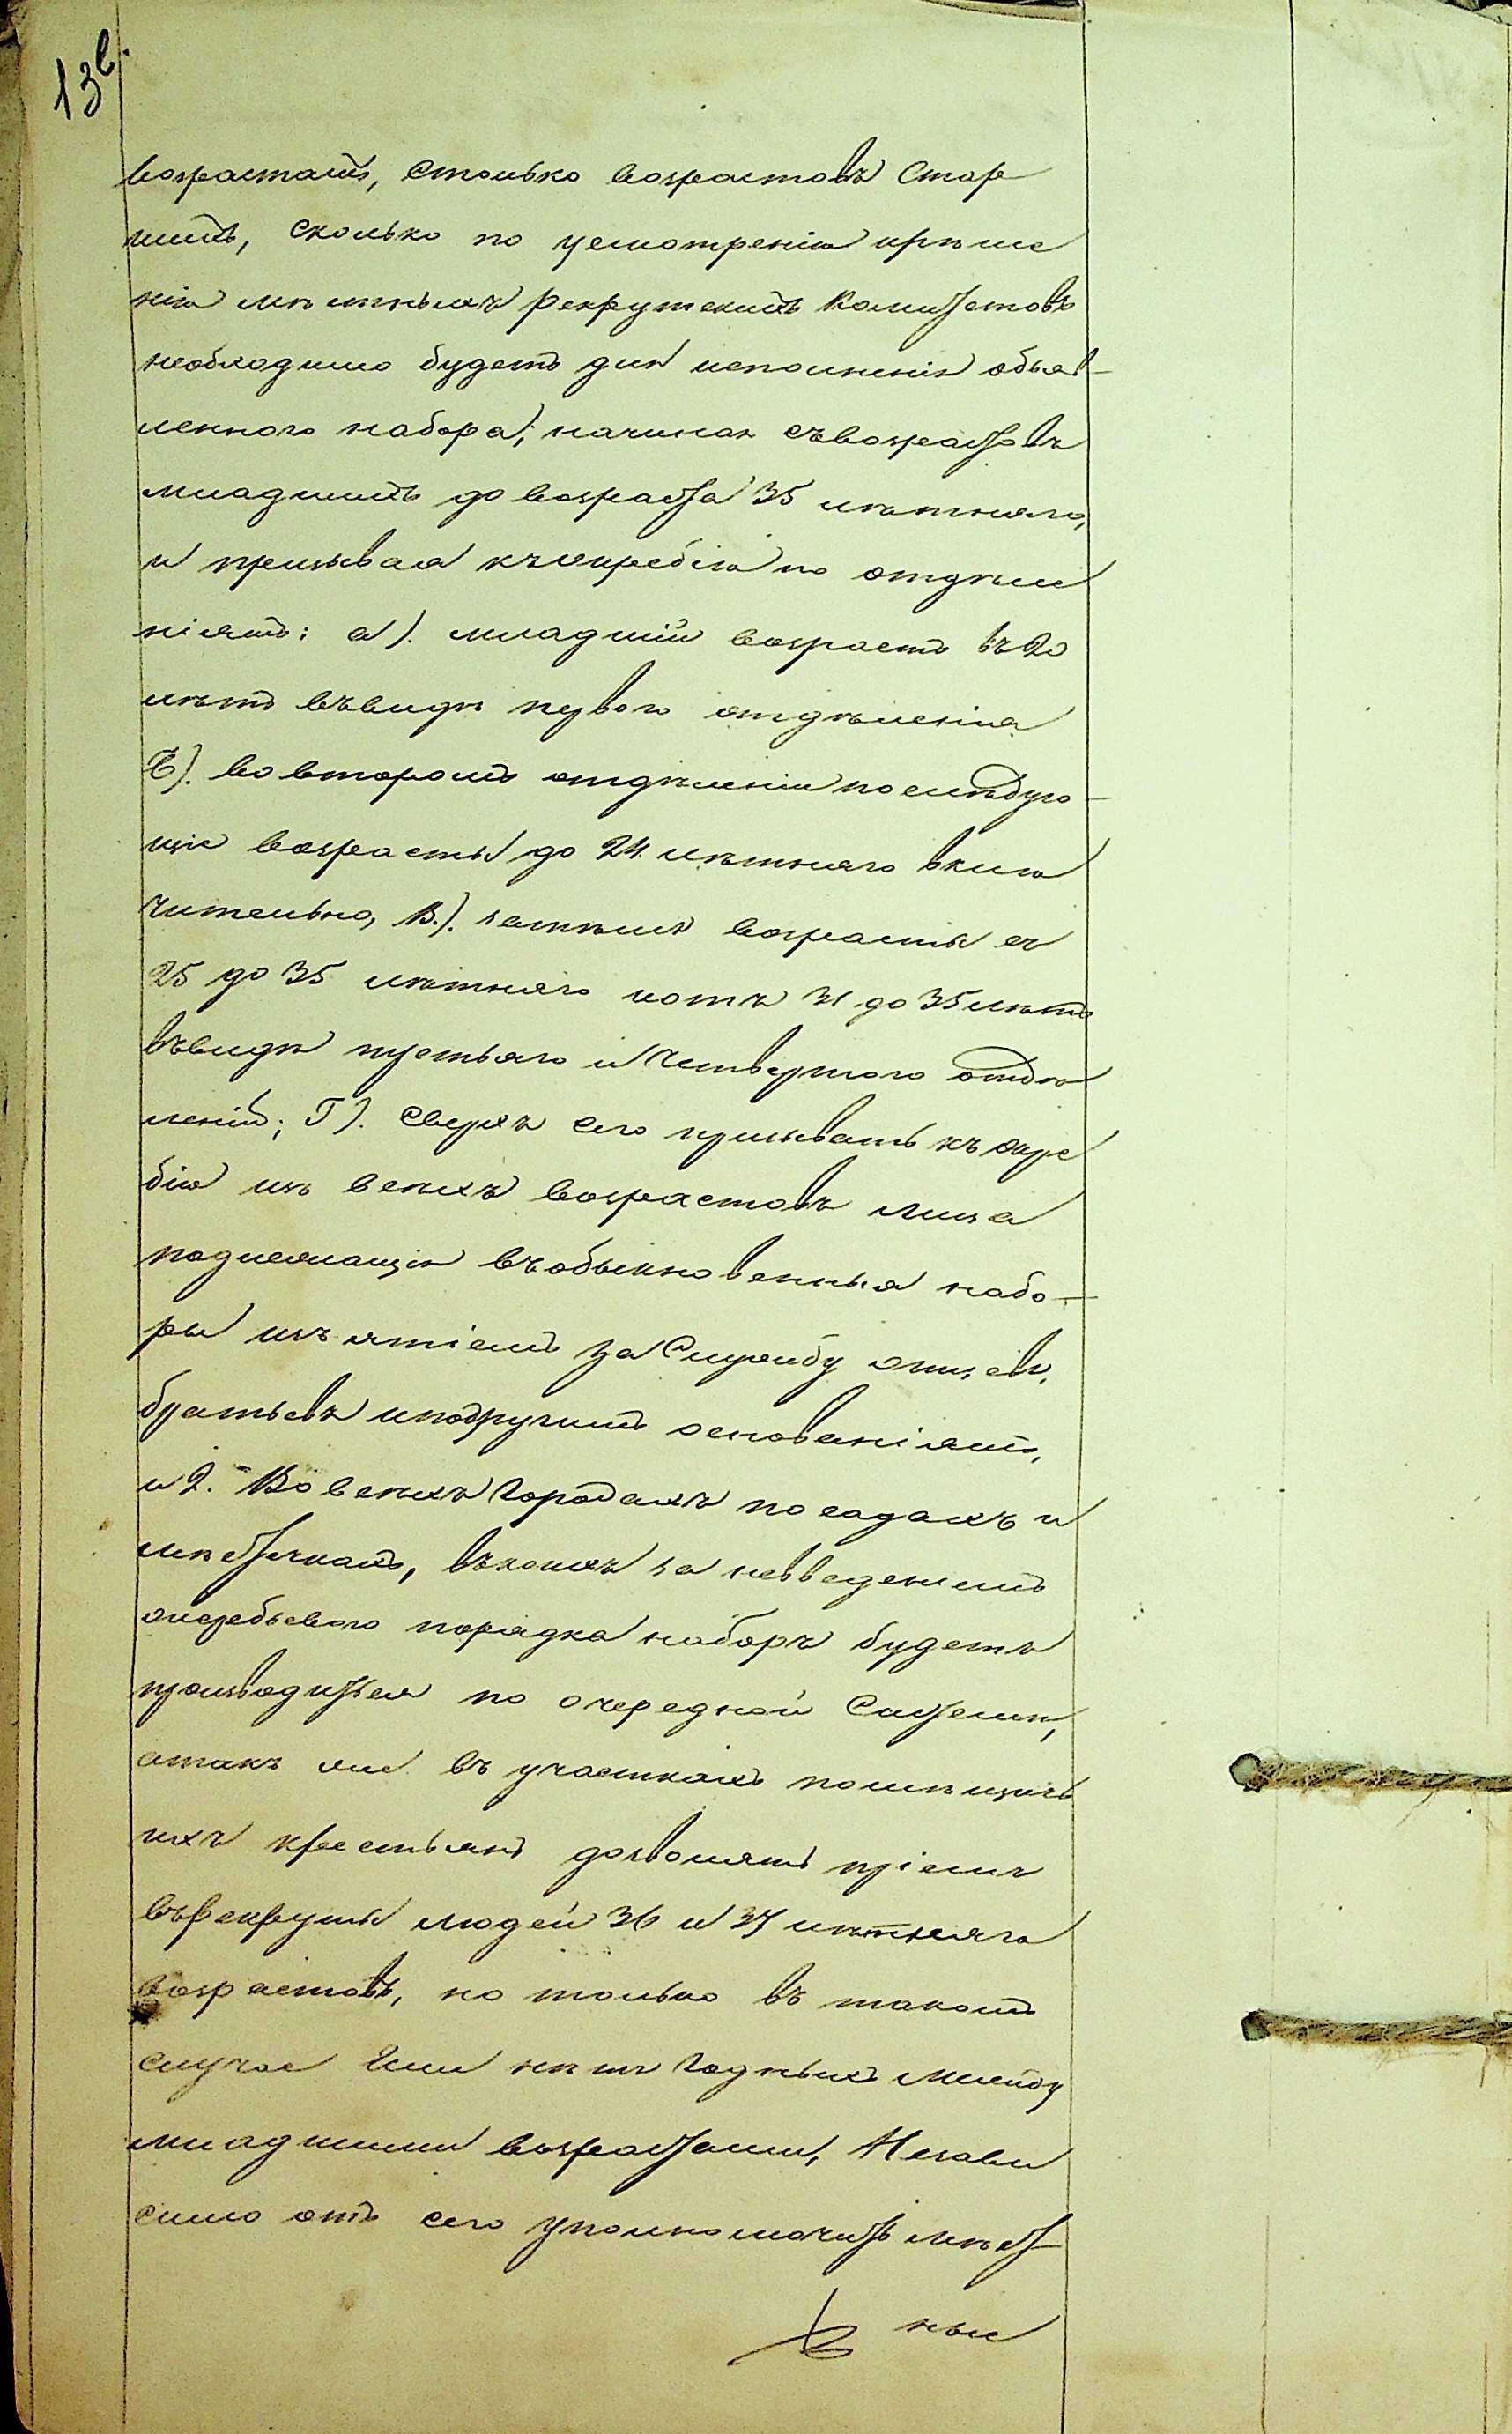 13 е.
возрастамъ, столько возрастовъ стар
шихъ, сколько по усмотренію и реше
нію местныхъ рекрутскихъ Комитетовъ
необходимо будетъ для исполненія объяв-
леннаго набора, начиная съ возрастовъ
младшихъ до возраста 35 летняго,
и призывая къ жребію по отделе
ніямъ: а). младшій возрастъ въ 20
летъ въ виде перваго отделенія
Б). во второмъ отделеніи последую-
щіе возрасты до 24 летняго вклю
чительно, В.). затемъ возрасты съ
25 до 35 летняго и отъ 31 до 35 летъ
въ виде третьяго и четвертаго отде
леній; Г). сверхъ сего призывать къ жре
бію изъ всехъ возрастовъ лица
подлежащія въ обыкновенныя набо-
ры изъятіемъ за службу отцевъ,
братьевъ и по другимъ основаніямъ,
и 2. Во всехъ городахъ посадахъ и
местечкахъ, въ коихъ за невведеніемъ
жеребьеваго порядка наборъ будетъ
производиться по очередной системе,
а такъ же въ участкахъ помещичь
ихъ крестьянъ дозволять пріемъ
въ рекруты людей 36 и 37 летняго
возрастовъ, но только въ такомъ
случае если нетъ годныхъ между
младшими возрастами, Незави
симо отъ сего уполномочить мест
ные